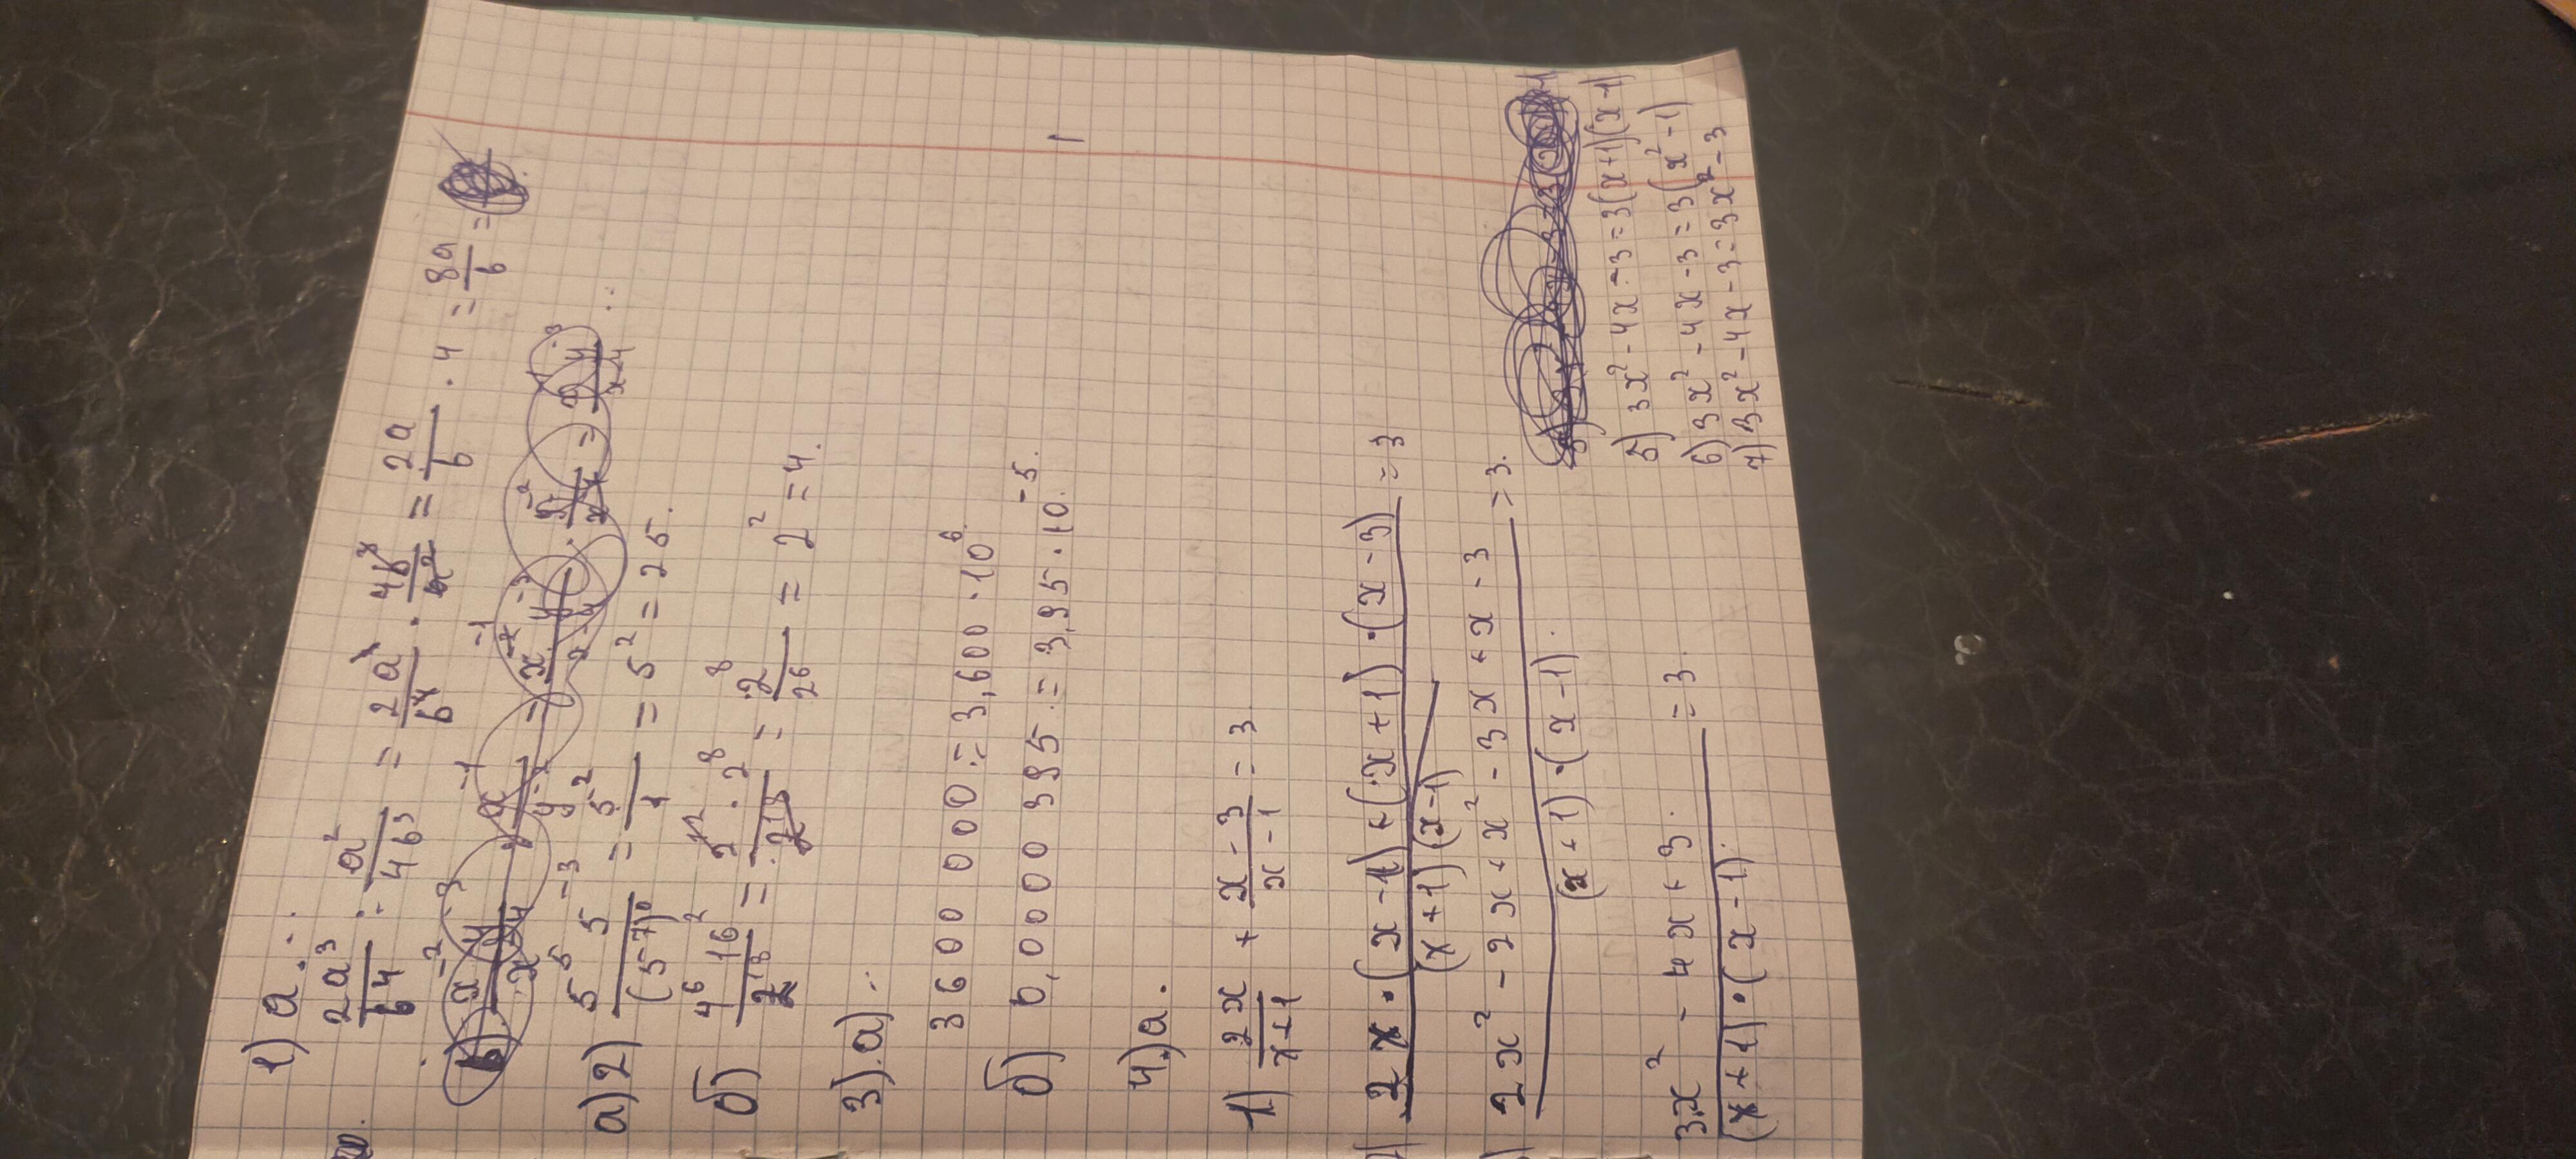 1) а.
2a³/b⁴ : a²/4b³ = 2a³/b⁴ · 4b³/a² = 2a/b · 4 = 8a/b =
а) 2) 5⁵ 5⁻³/(5⁷)⁰ = 5²/1 = 5² = 25.
б) 4⁶ 16²/2¹⁸ = 2¹² · 2⁸/2¹⁸ = 2⁸/2⁶ = 2² = 4.
3) а)
3600 000 = 3,600 · 10⁶.
б) 0,0000 395 = 3,95 · 10⁻⁵.
4) а.
1) 2x/x+1 + x-3/x-1 = 3
2x · (x-1) + (x+1) · (x-3)/(x+1)(x-1) = 3
2x² - 2x + x² - 3x + x - 3/(x+1) · (x-1). = 3.
3x² - 4x + 3./(x+1) · (x-1). = 3.
5) 3x² - 4x - 3 = 3(x+1)(x-1)
6) 3x² - 4x - 3 = 3(x² - 1)
7) 3x² - 4x - 3 = 3x² - 3